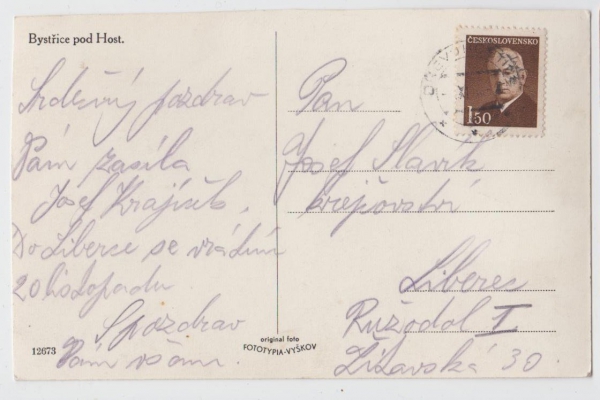 Bystřice pod Host.
Srdečný pozdrav
Vám zasílá
Josef Krajíček,
Do Liberce se vrátím
20 listopadu
S pozdrav
Vám všem.
12673
original foto
FOTOTYPIA-VYŠKOV
ČESKOSLOVENSKO
1·50
Pan
Josef Slavík
krejčovství
Liberec
Ružodol I
30